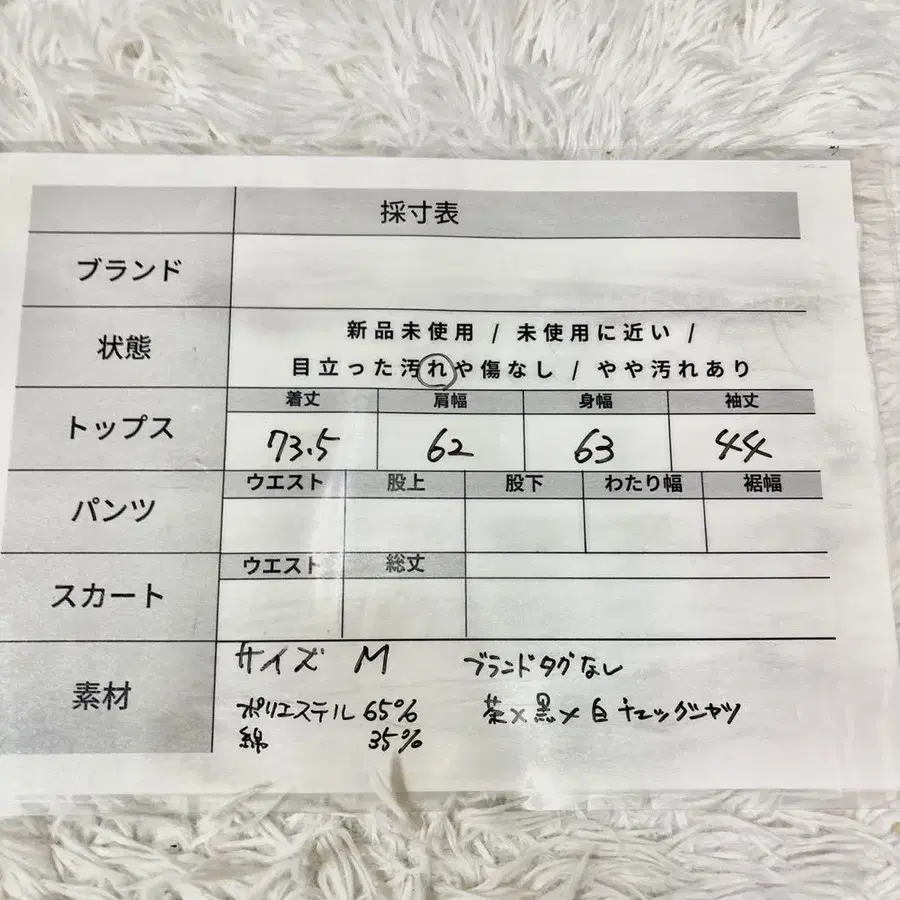 採寸表
ブランド
状態
新品未使用 / 未使用に近い /
目立った汚れや傷なし / やや汚れあり
トップス
着丈 肩幅 身幅 袖丈
73.5 62 63 44
パンツ
ウエスト 股上 股下 わたり幅 裾幅
スカート
ウエスト 総丈
素材
サイズ M ブランドタグなし
ポリエステル 65% 茶×黒×白チェックシャツ
綿 35%